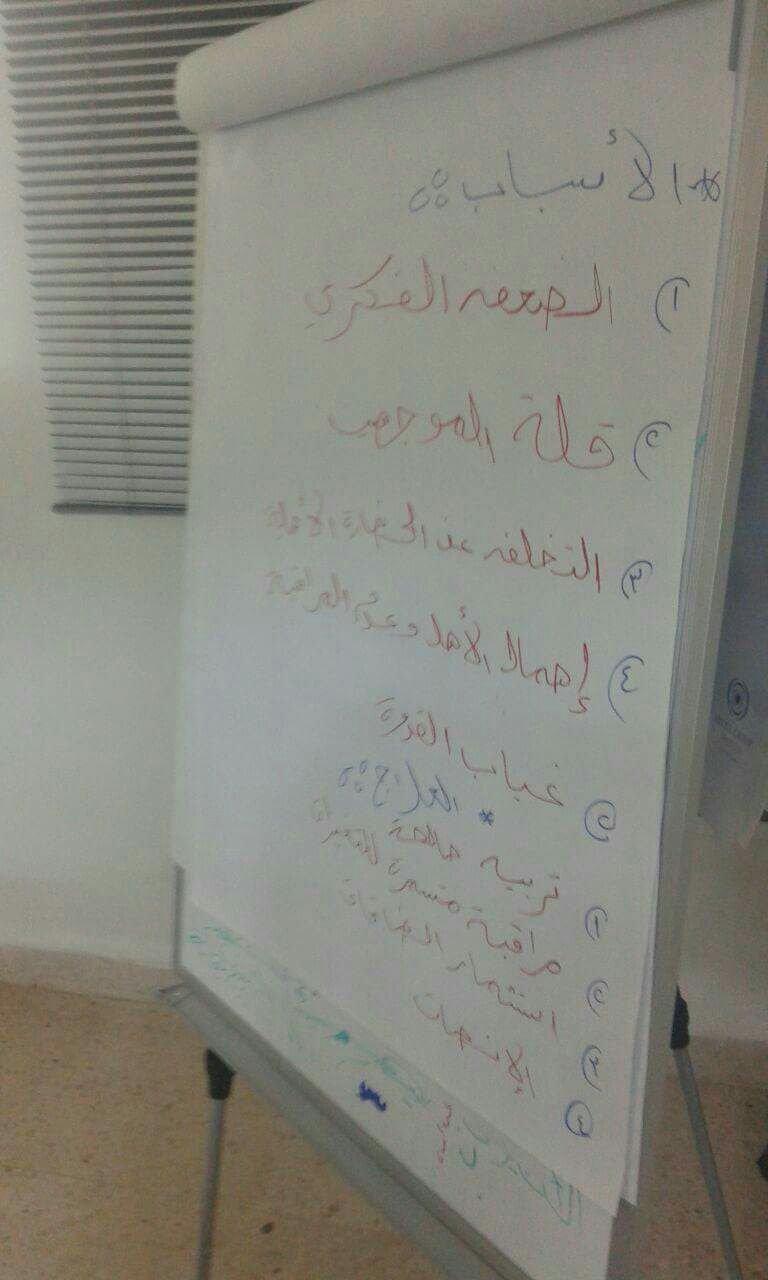 * الأسباب :
١) الضعف الفكري
٢) قلة الموجه
٣) التخلف عن الحضارة
٤) إهمال الأهل وعدم المراقبة
٥) غياب القدوة
* العلاج :
١) تربية صالحة
٢) مراقبة مستمرة
٣) استثمار الطاقات
٤) الإنصات